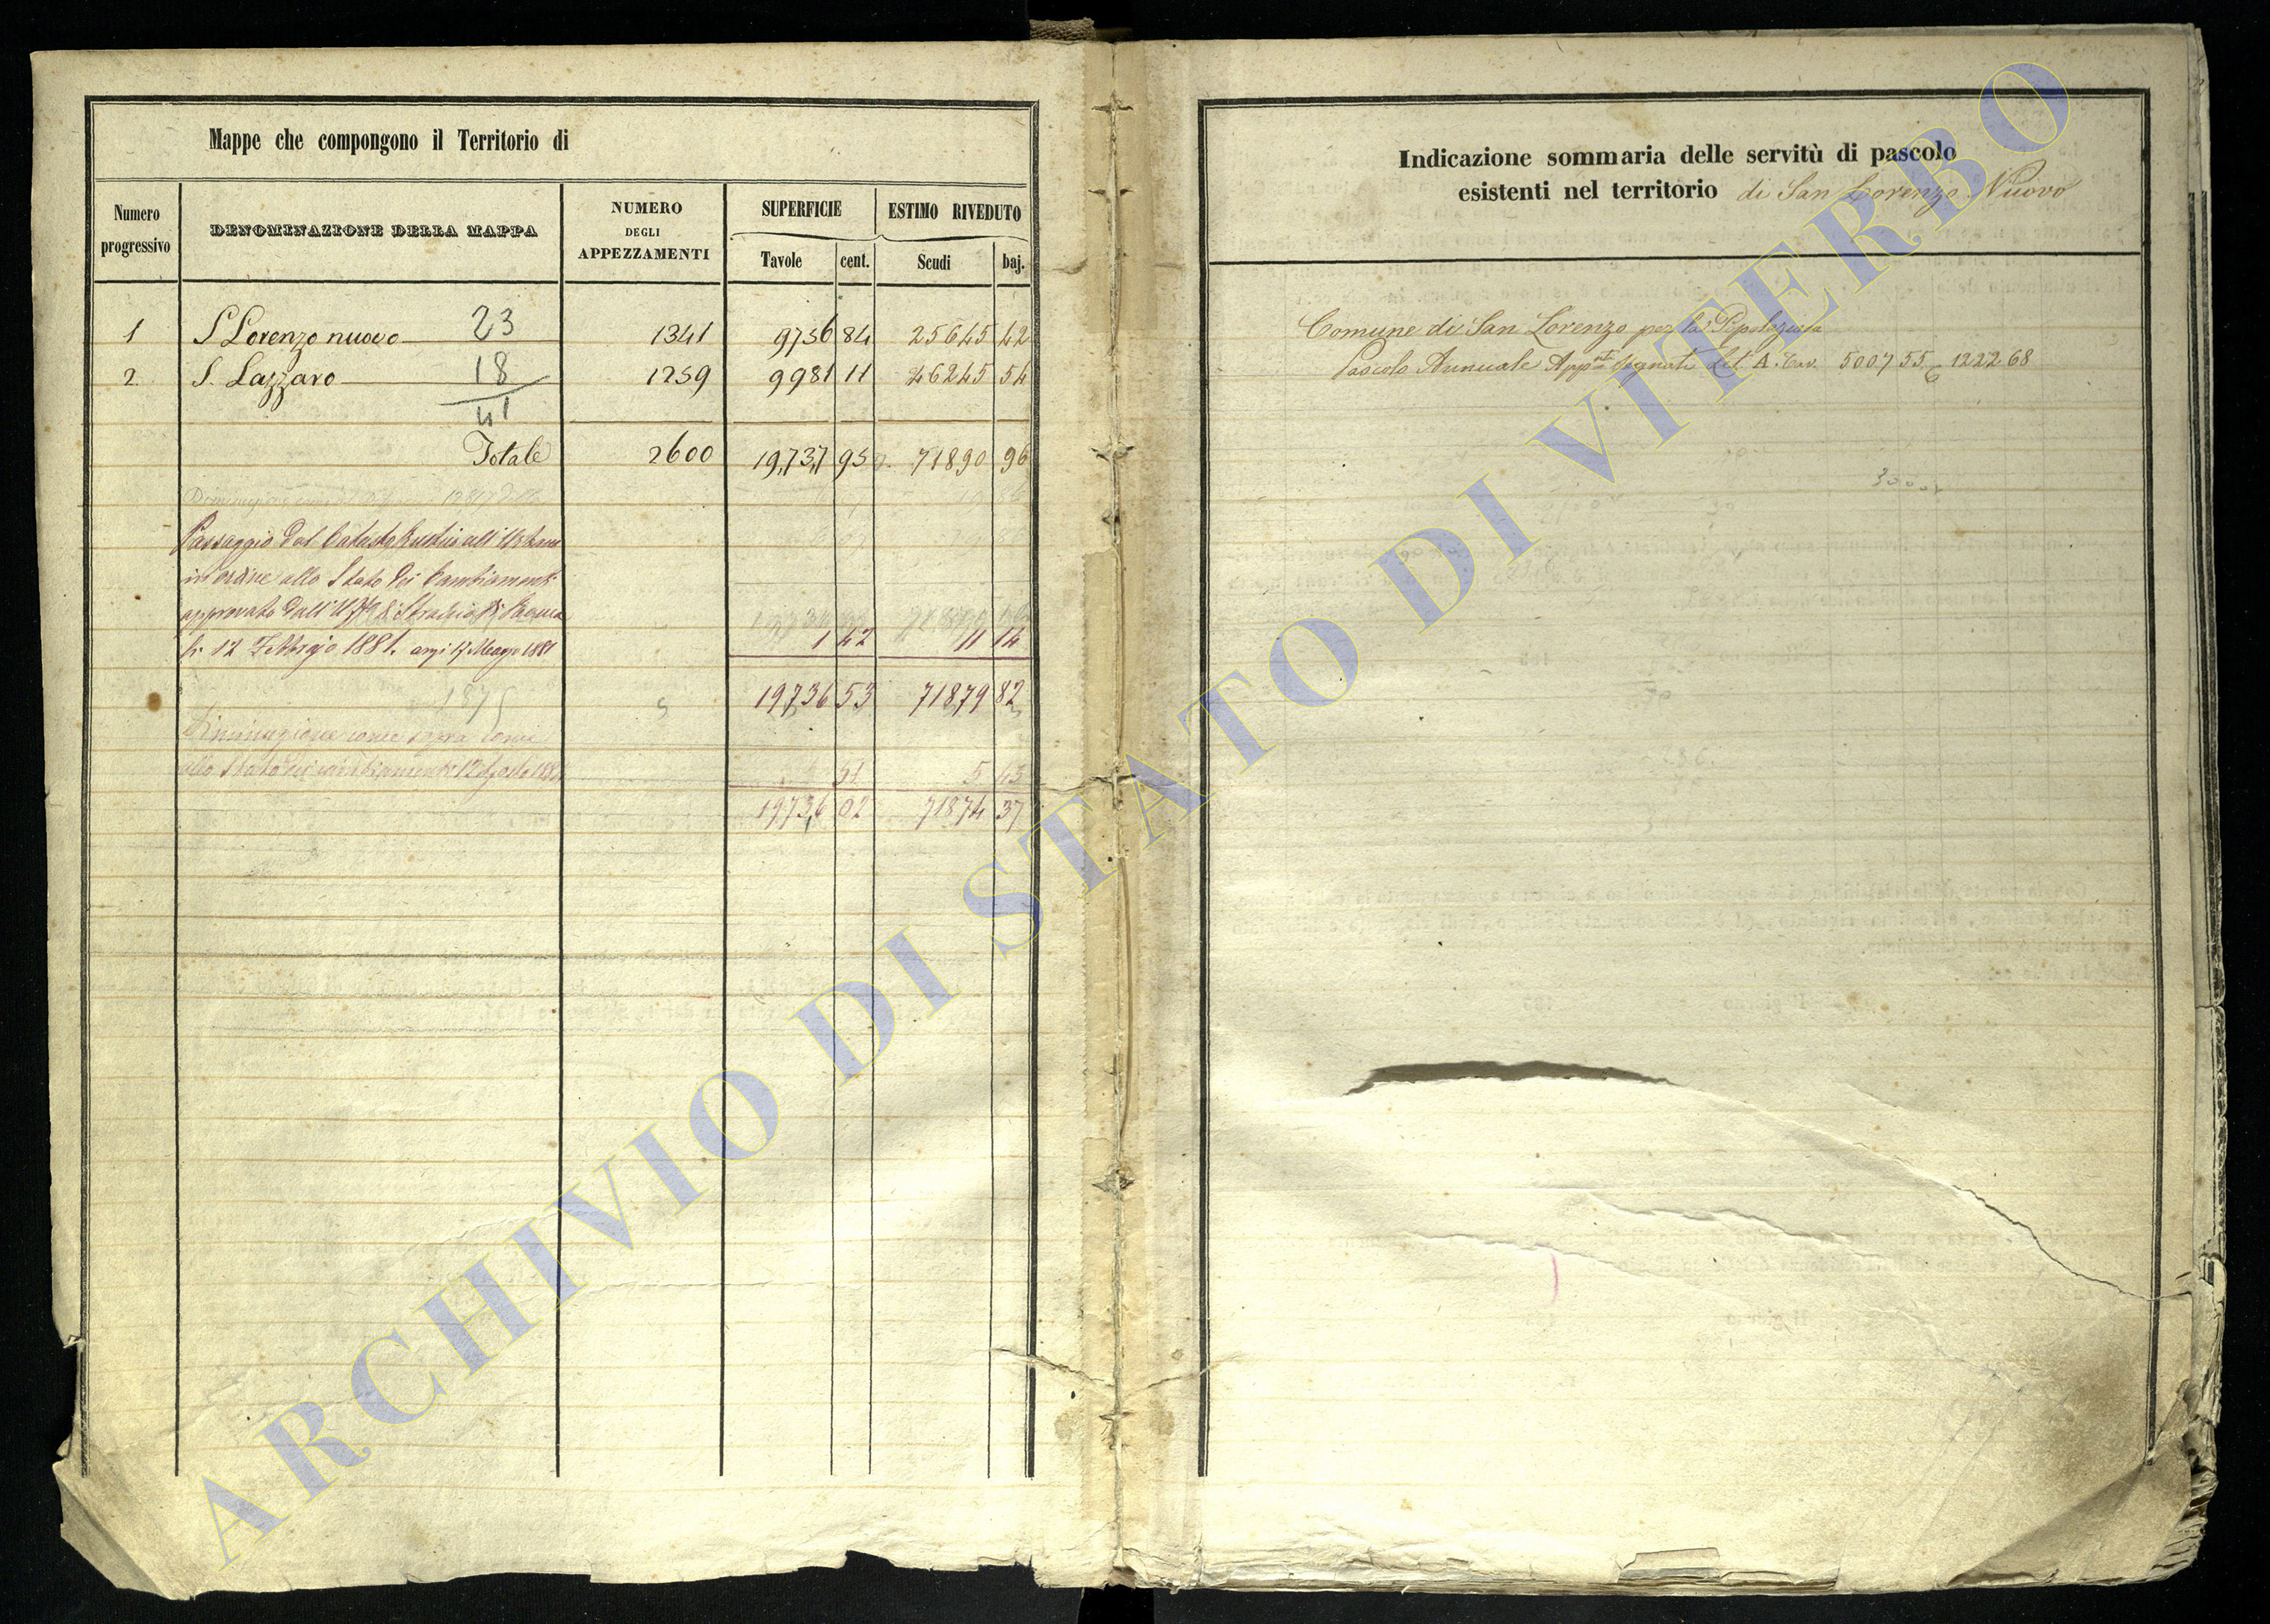 Mappe che compongono il Territorio di
Numero progressivo
DENOMINAZIONE DELLA MAPPA
NUMERO DEGLI APPEZZAMENTI
SUPERFICIE
ESTIMO RIVEDUTO
Tavole cent. Scudi baj.
1 S Lorenzo nuovo 23 1341 9756 84 25645 42
2 S. Lazzaro 18 1259 9981 11 46245 54
41
Totale 2600 19,737 95 71890 96
Passaggio dal Catasto Rustico all' Urbano
in ordine allo Stato dei Cambiamenti
approvato dall'
li 12 Febbrajo 1881. 17 Maggio 1881 1 42 11 14
19736 53 71879 82
1875
Diminuzione come sopra
allo Stato dei cambiamenti 12 Agosto 51 5 45
19736 02 71874 37
Indicazione sommaria delle servitù di pascolo
esistenti nel territorio di San Lorenzo Nuovo
Comune di San Lorenzo per la Popolazione
Pascolo Annuale segnati Let. A. 5007 55 1222 68
ARCHIVIO DI STATO DI VITERBO